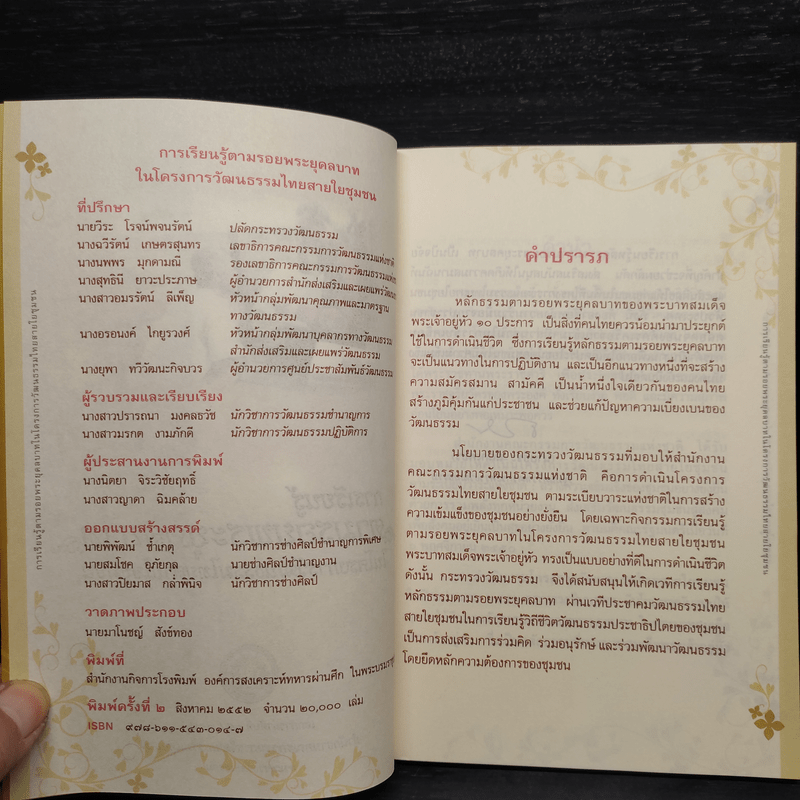 การเรียนรู้ตามรอยพระยุคลบาท
ในโครงการวัฒนธรรมไทยสายใยชุมชน
ที่ปรึกษา
นายวีระ โรจน์พจนรัตน์ ปลัดกระทรวงวัฒนธรรม
นางฉวีรัตน์ เกษตรสุนทร เลขาธิการคณะกรรมการวัฒนธรรมแห่งชาติ
นางนพพร มุกดามณี รองเลขาธิการคณะกรรมการวัฒนธรรมแห่งชาติ
นางสุทธินี ยาวะประภาษ ผู้อำนวยการสำนักส่งเสริมและเผยแพร่วัฒนธรรม
นางสาวอมรรัตน์ ลีเพ็ญ หัวหน้ากลุ่มพัฒนาคุณภาพและมาตรฐาน
ทางวัฒนธรรม
นางอรอนงค์ ไกยูรวงศ์ หัวหน้ากลุ่มพัฒนาบุคลากรทางวัฒนธรรม
สำนักส่งเสริมและเผยแพร่วัฒนธรรม
นางยุพา ทวีวัฒนะกิจบวร ผู้อำนวยการศูนย์ประชาสัมพันธ์วัฒนธรรม
ผู้รวบรวมและเรียบเรียง
นางสาวปรารถนา มงคลธวัช นักวิชาการวัฒนธรรมชำนาญการ
นางสาวมรกต งามภักดี นักวิชาการวัฒนธรรมปฏิบัติการ
ผู้ประสานงานการพิมพ์
นางนิตยา จิระวิชัยฤทธิ์
นางสาวญาดา ฉิมคล้าย
ออกแบบสร้างสรรค์
นายพิพัฒน์ ช้ำเกตุ นักวิชาการช่างศิลป์ชำนาญการพิเศษ
นายสมโชค อุภัยกุล นายช่างศิลป์ชำนาญงาน
นางสาวปิยมาส กล่ำพินิจ นักวิชาการช่างศิลป์
วาดภาพประกอบ
นายมาโนชญ์ สังข์ทอง
พิมพ์ที่
สำนักงานกิจการโรงพิมพ์ องค์การสงเคราะห์ทหารผ่านศึก ในพระบรมรา
พิมพ์ครั้งที่ ๒ สิงหาคม ๒๕๕๒ จำนวน ๒๐,๐๐๐ เล่ม
ISBN ๙๗๘-๖๑๑-๕๔๓-๐๑๔-๗
การเรียนรู้ตามรอยพระยุคลบาทในโครงการวัฒนธรรมไทยสายใยชุมชน
คำปรารภ
หลักธรรมตามรอยพระยุคลบาทของพระบาทสมเด็จ
พระเจ้าอยู่หัว ๑๐ ประการ เป็นสิ่งที่คนไทยควรน้อมนำมาประยุกต์
ใช้ในการดำเนินชีวิต ซึ่งการเรียนรู้หลักธรรมตามรอยพระยุคลบาท
จะเป็นแนวทางในการปฏิบัติงาน และเป็นอีกแนวทางหนึ่งที่จะสร้าง
ความสมัครสมาน สามัคคี เป็นน้ำหนึ่งใจเดียวกันของคนไทย
สร้างภูมิคุ้มกันแก่ประชาชน และช่วยแก้ปัญหาความเบี่ยงเบนของ
วัฒนธรรม
นโยบายของกระทรวงวัฒนธรรมที่มอบให้สำนักงาน
คณะกรรมการวัฒนธรรมแห่งชาติ คือการดำเนินโครงการ
วัฒนธรรมไทยสายใยชุมชน ตามระเบียบวาระแห่งชาติในการสร้าง
ความเข้มแข็งของชุมชนอย่างยั่งยืน โดยเฉพาะกิจกรรมการเรียนรู้
ตามรอยพระยุคลบาทในโครงการวัฒนธรรมไทยสายใยชุมชน
พระบาทสมเด็จพระเจ้าอยู่หัว ทรงเป็นแบบอย่างที่ดีในการดำเนินชีวิต
ดังนั้น กระทรวงวัฒนธรรม จึงได้สนับสนุนให้เกิดเวทีการเรียนรู้
หลักธรรมตามรอยพระยุคลบาท ผ่านเวทีประชาคมวัฒนธรรมไทย
สายใยชุมชนในการเรียนรู้วิถีชีวิตวัฒนธรรมประชาธิปไตยของชุมชน
เป็นการส่งเสริมการร่วมคิด ร่วมอนุรักษ์ และร่วมพัฒนาวัฒนธรรม
โดยยึดหลักความต้องการของชุมชน
การเรียนรู้ตามรอยพระยุคลบาทในโครงการวัฒนธรรมไทยสายใยชุมชน